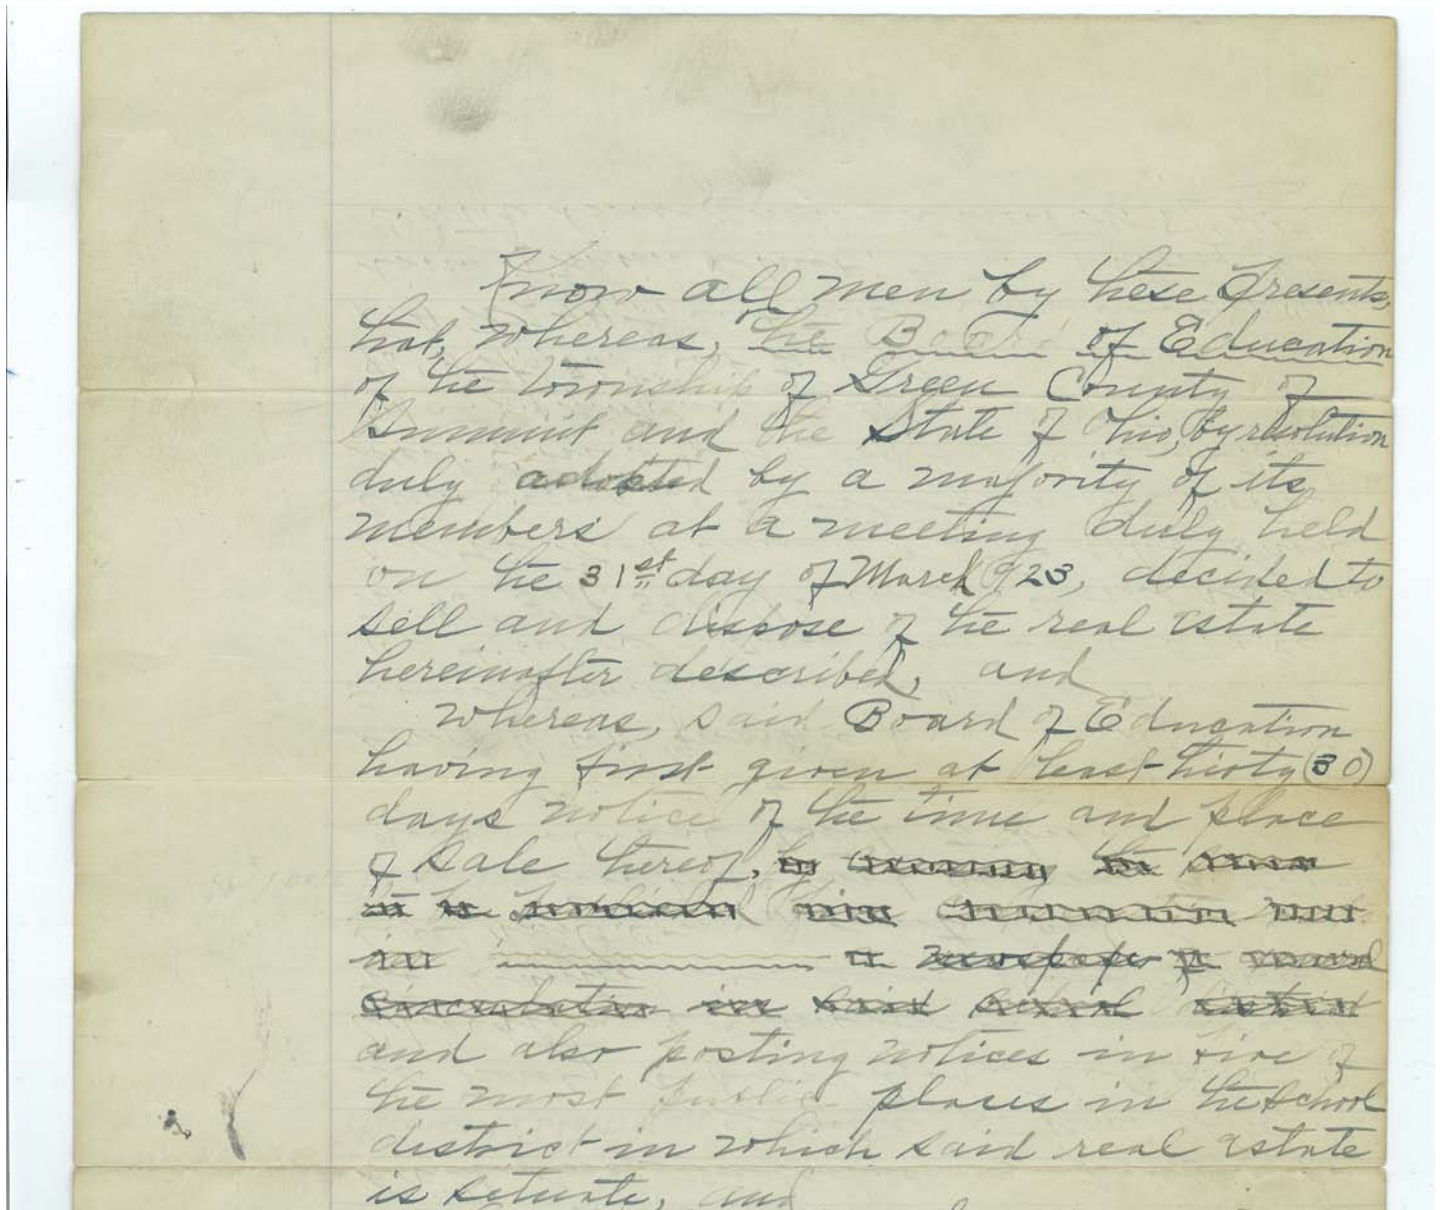 Know all men by these Presents,
that, whereas, the Board of Education
of the township of Green County of
Summit and the State of Ohio, by resolution
duly adopted by a majority of its
members at a meeting duly held
on the 31st day of March 1923, decided to
sell and dispose of the real estate
hereinafter described, and
whereas, said Board of Education
having first given at least thirty (30)
days notice of the time and place
of sale thereof, by
in a newspaper of general
circulation in said school district
and also posting notices in five of
the most public places in the school
district in which said real estate
is situate, and